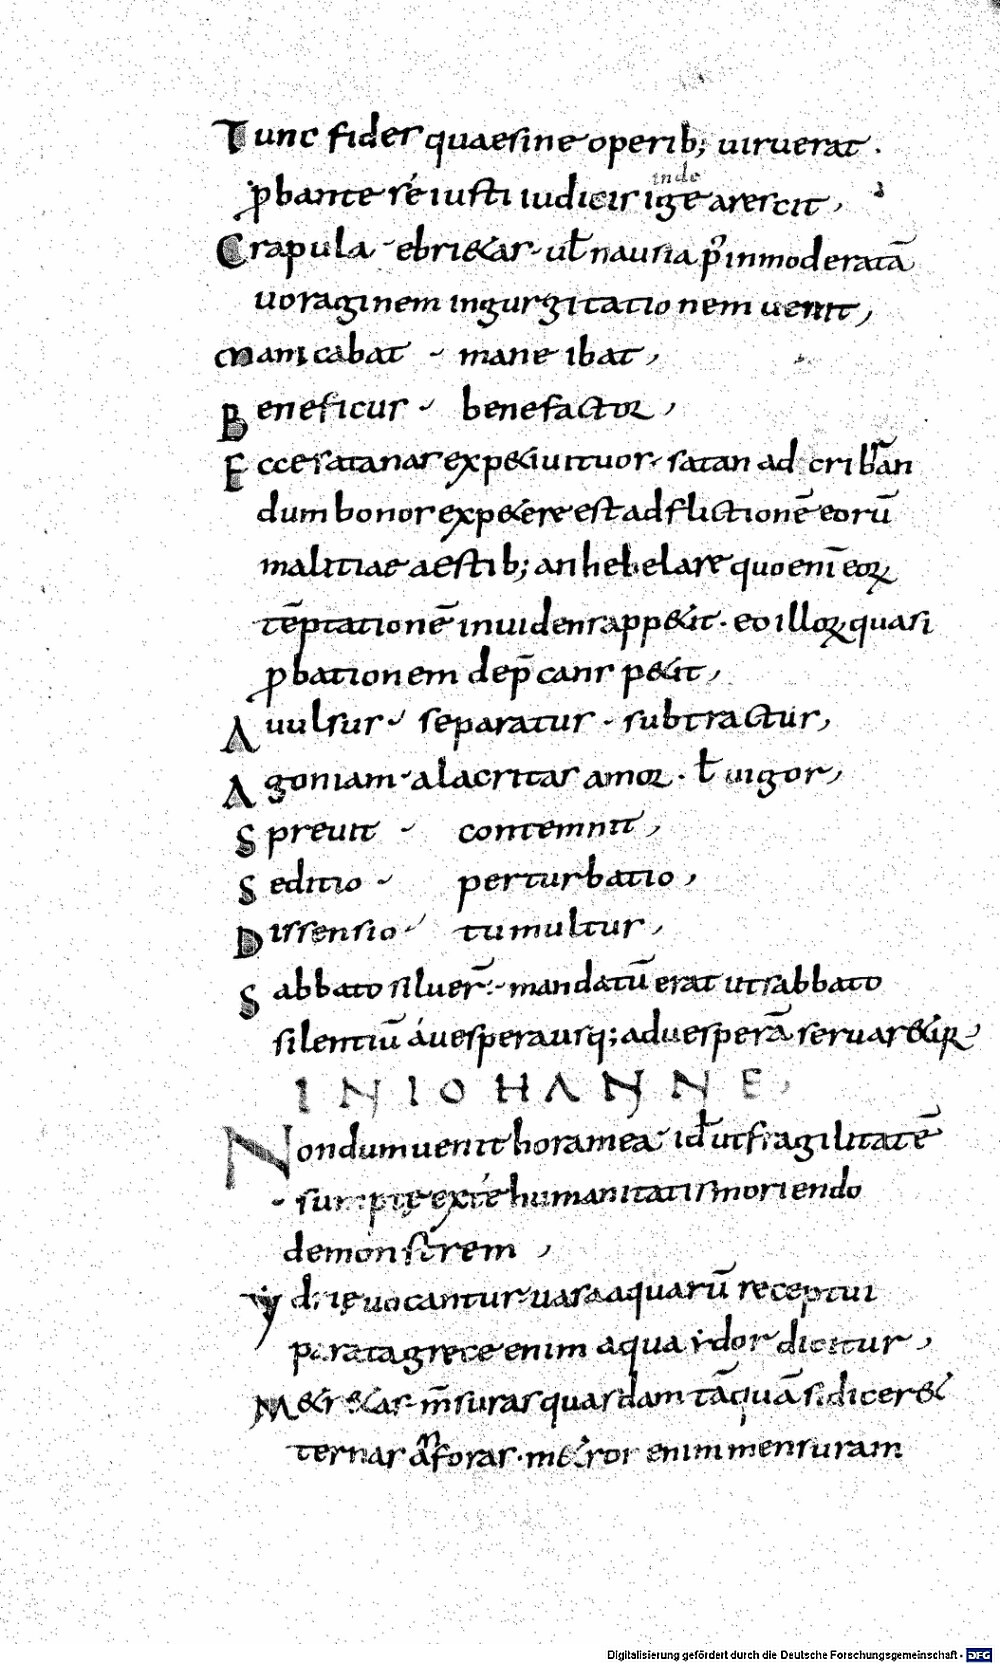 Tunc fides quae sine operib; uixerat.
ꝓbante se iusti iudicis ige arescit,
inde
Crapula ebri&as ul nausia p inmoderatā
uoraginem ingurgitationem uenit,
manicabat mane ibat,
Beneficus benefactor,
Ecce satanas exp&iuit uos satan ad cribran
dum bonos exp&ere est adflictionē eorū
malitiae aestib; anhelare quo enī eoꝝ
tēptationē inuidens app&it. eo illoꝝ quasi
ꝓbationem dep̄cans p&it,
Auulsus separatus subtractus,
Agoniam alacritas amor. ł uigor,
Spreuit contemnit,
Seditio perturbatio,
Dissensio tumultus,
Sabbato siluer̄ mandatū erat ut sabbato
silentiū a uespera usq; ad uesperā seruar&ur
IN IOHANNE,
Nondum uenit hora mea id ut fragilitatē
sumptę ex te humanitatis moriendo
demonstrem,
Ydrię uocantur uasa aquarū receptui
parata grece enim aqua idor dicitur,
M&r&as m̄suras quasdam tāquā si dicer&
ternas anforas. m&ros enim mensuram
Digitalisierung gefördert durch die Deutsche Forschungsgemeinschaft - DFG